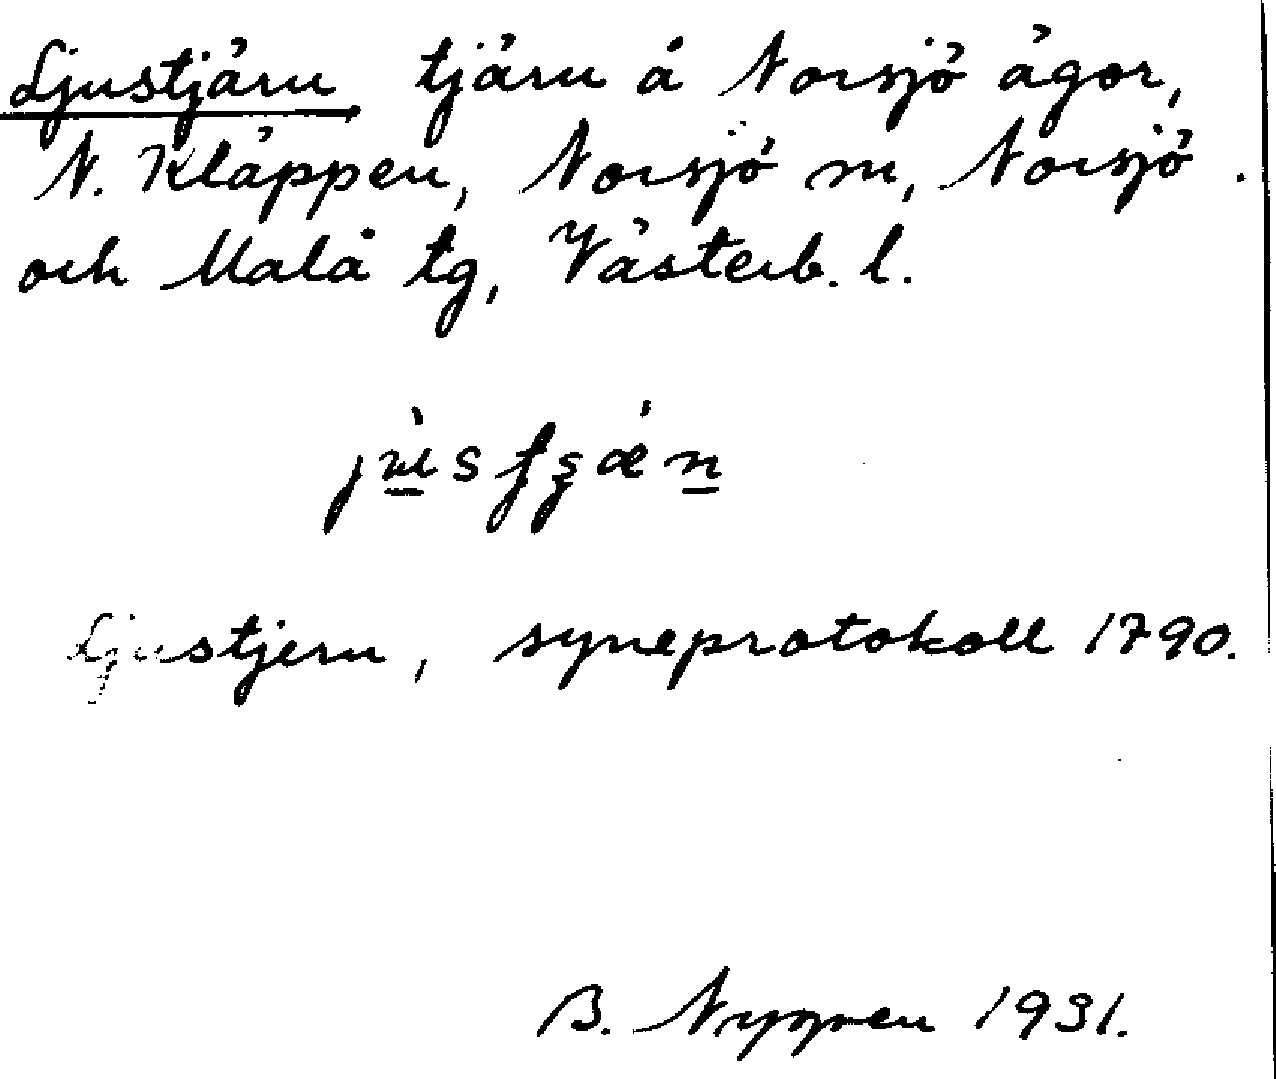 Ljustjärn, tjärn å Norsjö ägor,
N. Kläppen, Norsjö sn, Norsjö
och Malå tg, Västerb. l.
Ljustjern, syneprotokoll 1790.
B. Nygren 1931.